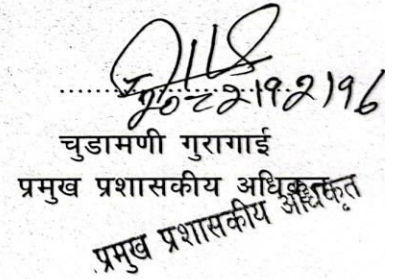 २०८२।१२।१६
चुडामणी गुरागाई
प्रमुख प्रशासकीय अधिकृत
प्रमुख प्रशासकीय अधिकृत